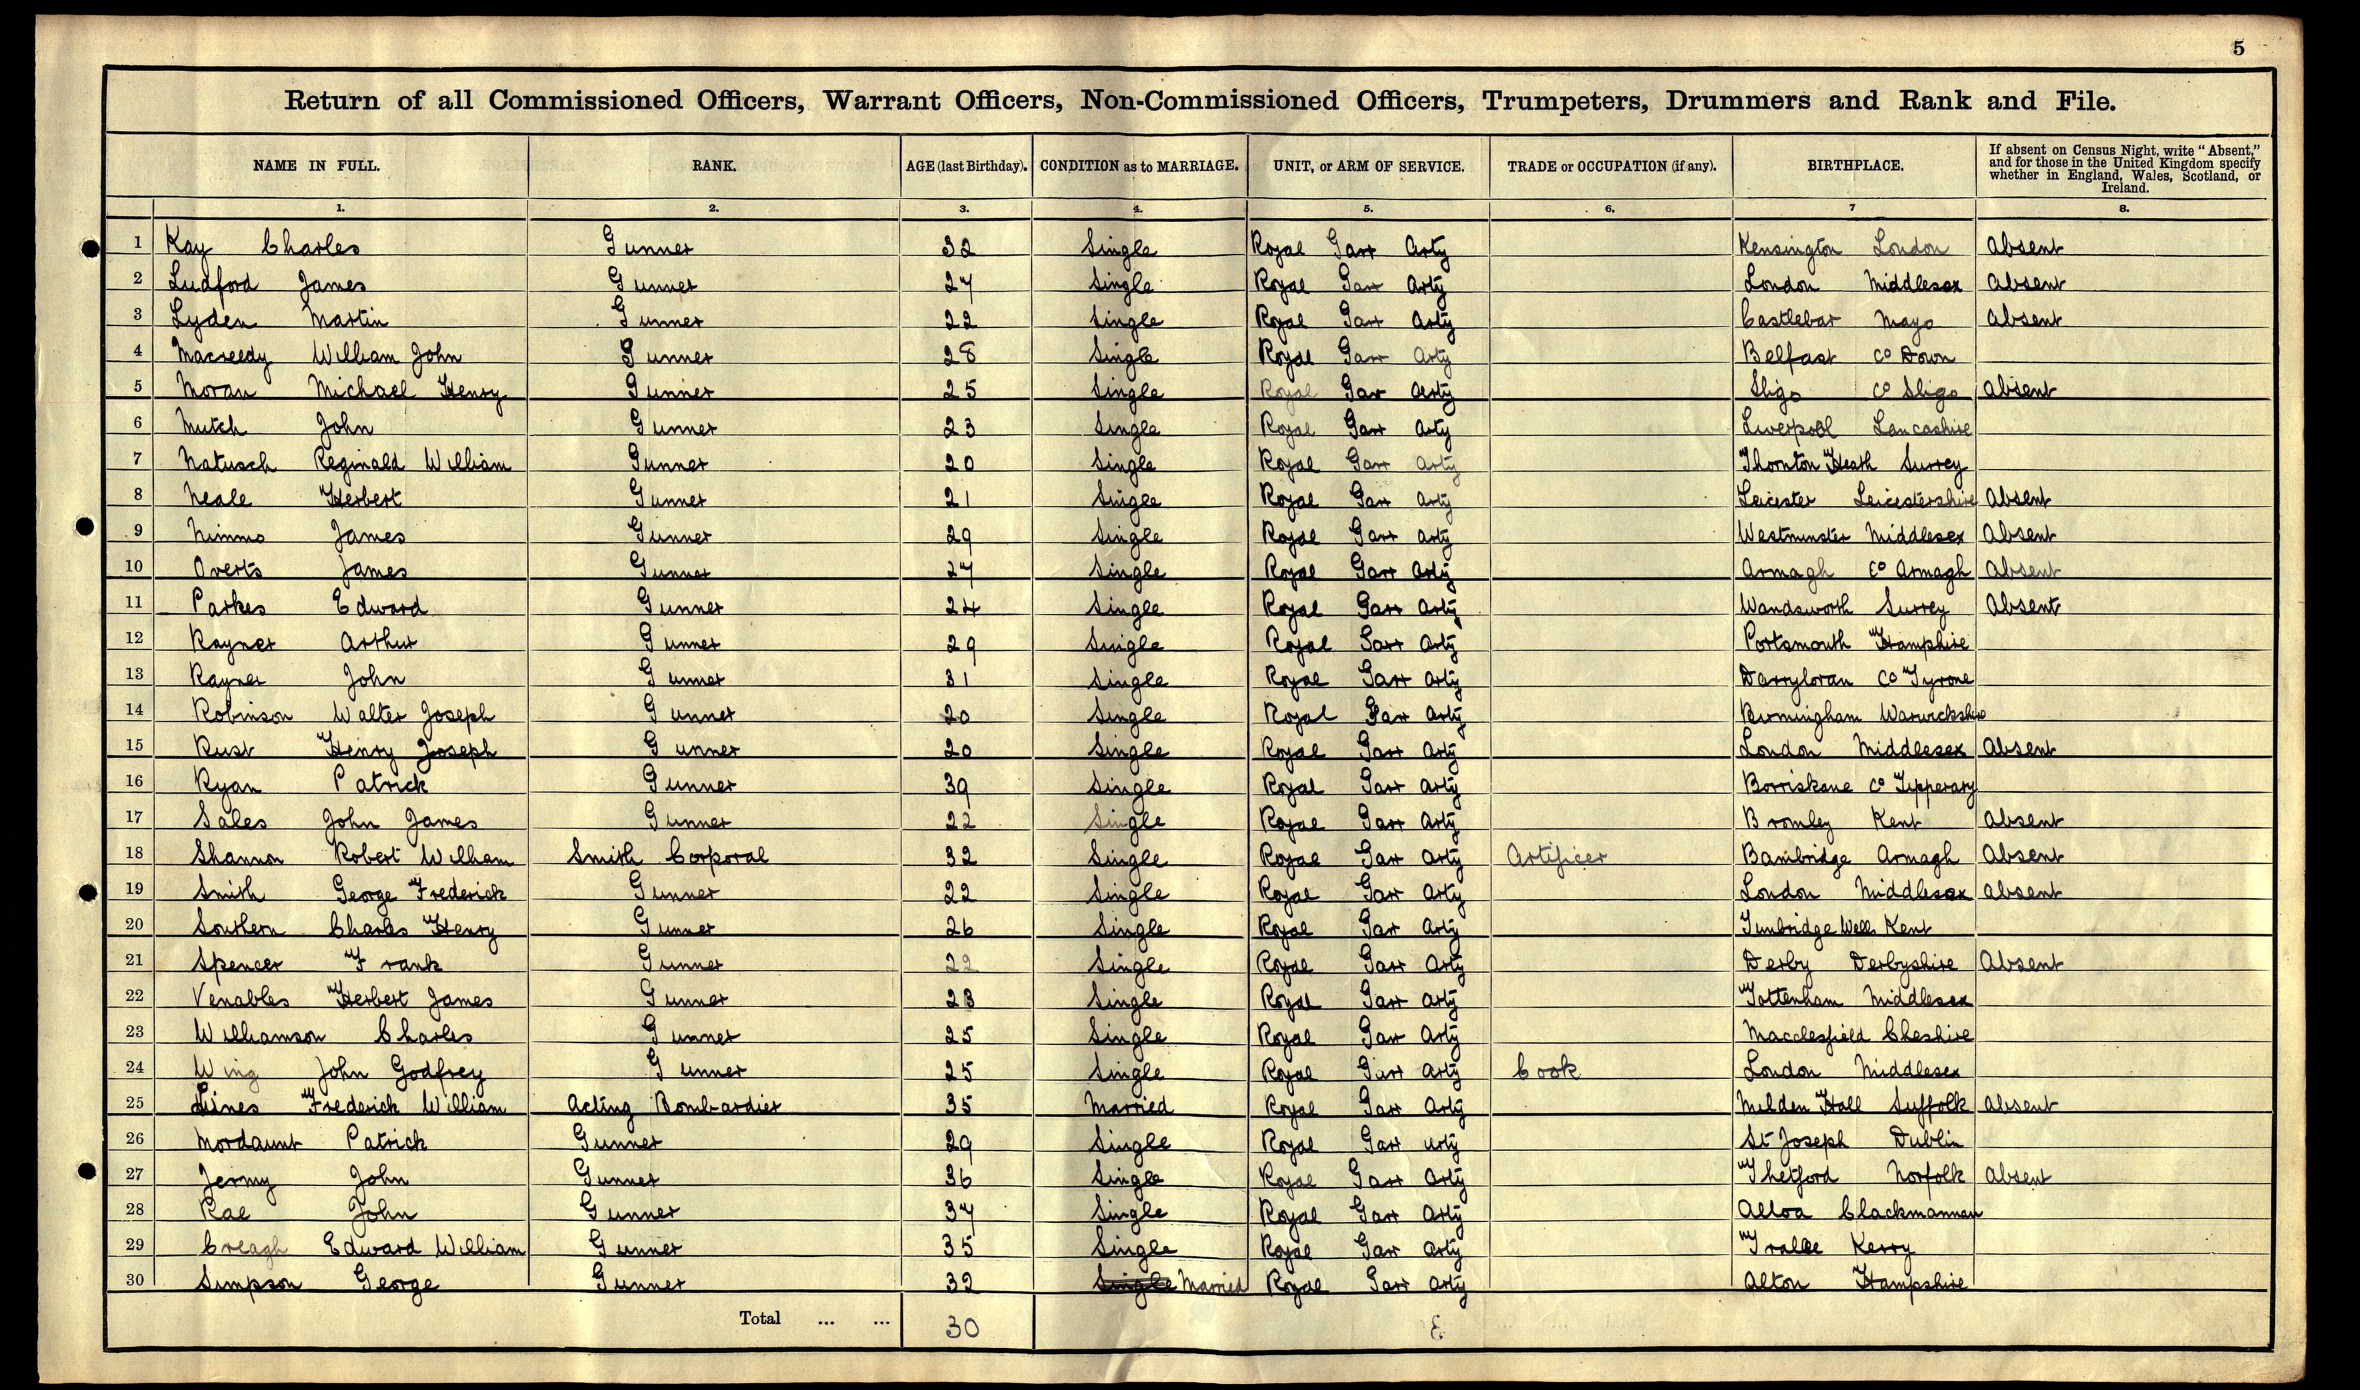 5
Return of all Commissioned Officers, Warrant Officers, Non-Commissioned Officers, Trumpeters, Drummers and Rank and File.
NAME IN FULL. RANK. AGE (last Birthday). CONDITION as to MARRIAGE. UNIT, or ARM OF SERVICE. TRADE or OCCUPATION (if any). BIRTHPLACE. If absent on Census Night, write "Absent," and for those in the United Kingdom specify whether in England, Wales, Scotland, or Ireland.
1. 2. 3. 4. 5. 6. 7 8.
1 Kay Charles Gunner 32 Single Royal Garr Arty Kensington London Absent
2 Ludford James Gunner 27 Single Royal Garr Arty London Middlesex Absent
3 Lyden Martin Gunner 22 Single Royal Garr Arty Castlebar Mayo Absent
4 Macreedy William John Gunner 28 Single Royal Garr Arty Belfast Co Down
5 Moran Michael Henry Gunner 25 Single Royal Gar Arty Sligo Co Sligo Absent
6 Mutch John Gunner 23 Single Royal Garr Arty Liverpool Lancashire
7 Natusch Reginald William Gunner 20 Single Royal Garr Arty Thornton Heath Surrey
8 Neale Herbert Gunner 21 Single Royal Garr Arty Leicester Leicestershire Absent
9 Nimmo James Gunner 29 Single Royal Garr Arty Westminster Middlesex Absent
10 Overts James Gunner 27 Single Royal Garr Arty Armagh Co Armagh Absent
11 Parkes Edward Gunner 24 Single Royal Garr Arty Wandsworth Surrey Absent
12 Rayner Arthur Gunner 29 Single Royal Garr Arty Portsmouth Hampshire
13 Rayner John Gunner 31 Single Royal Garr Arty Darryloran Co Tyrone
14 Robinson Walter Joseph Gunner 20 Single Royal Garr Arty Birmingham Warwickshire
15 Rust Henry Joseph Gunner 20 Single Royal Garr Arty London Middlesex Absent
16 Ryan Patrick Gunner 39 Single Royal Garr Arty Borriskane Co Tipperary
17 Sales John James Gunner 22 Single Royal Garr Arty Bromley Kent Absent
18 Shannon Robert William Smith Corporal 32 Single Royal Garr Arty Artificer Bambridge Armagh Absent
19 Smith George Frederick Gunner 22 Single Royal Garr Arty London Middlesex Absent
20 Southern Charles Henry Gunner 26 Single Royal Gar Arty Tunbridge Wells Kent
21 Spencer Frank Gunner 22 Single Royal Garr Arty Derby Derbyshire Absent
22 Venables Herbert James Gunner 23 Single Royal Garr Arty Tottenham Middlesex
23 Williamson Charles Gunner 25 Single Royal Garr Arty Macclesfield Cheshire
24 Wing John Godfrey Gunner 25 Single Royal Garr Arty Cook London Middlesex
25 Lines Frederick William Acting Bombardier 35 Married Royal Garr Arty Milden Hall Suffolk Absent
26 Mordaunt Patrick Gunner 29 Single Royal Garr Arty St Joseph Dublin
27 Jermy John Gunner 36 Single Royal Garr Arty Thetford Norfolk Absent
28 Rae John Gunner 37 Single Royal Garr Arty Alloa Clackmannan
29 Creagh Edward William Gunner 35 Single Royal Garr Arty Tralee Kerry
30 Simpson George Gunner 32 Single Married Royal Garr Arty Alton Hampshire
Total ... ... 30